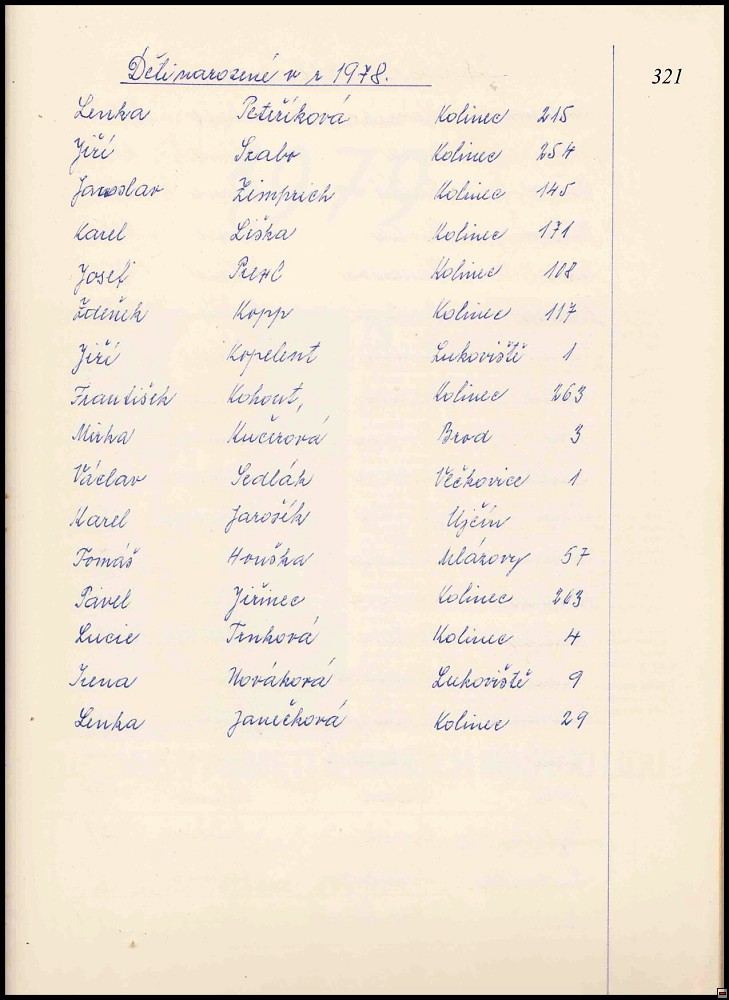 Děti narozené v r 1978.
321
Lenka Petříková Kolinec 215
Jiří Szabo Kolinec 254
Jaroslav Zimprich Kolinec 145
Karel Liška Kolinec 171
Josef Kolinec 108
Zdeněk Kopp Kolinec 117
Jiří Kopelent Lukoviště 1
František Kohout, Kolinec 263
Mirka Kučerová Brod 3
Václav Sedlák Věčkovice 1
Karel Jarošík Ujčín
Tomáš Houška Mlázovy 57
Pavel Jiřinec Kolinec 263
Lucie Trnková Kolinec 4
Irena Nováková Lukoviště 9
Lenka Janečková Kolinec 29